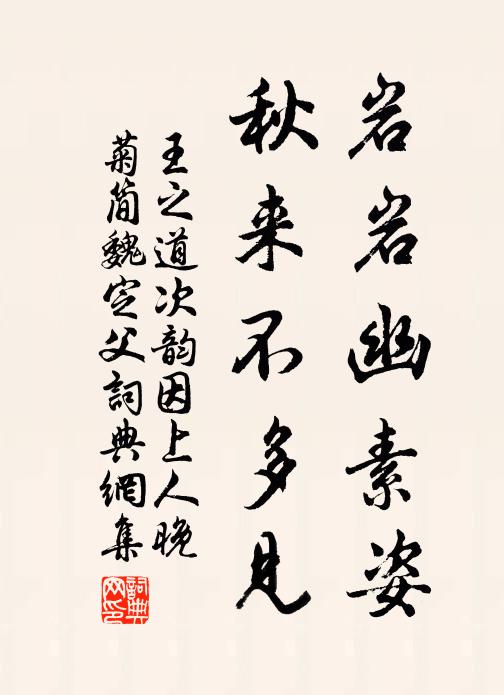 岩岩幽素姿
秋来不多见
王之道次韵因上人晚
菊简魏定父詞典網集
詞典網印